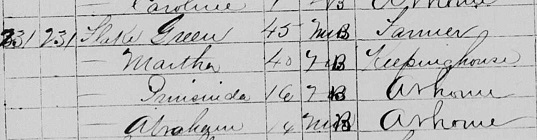 Caroline 1 B At Home
231 231 Flake Green 45 M B Farmer
— Martha 40 F B Keeping house
— Priscinda 16 F B At home
— Abraham 14 M B At home